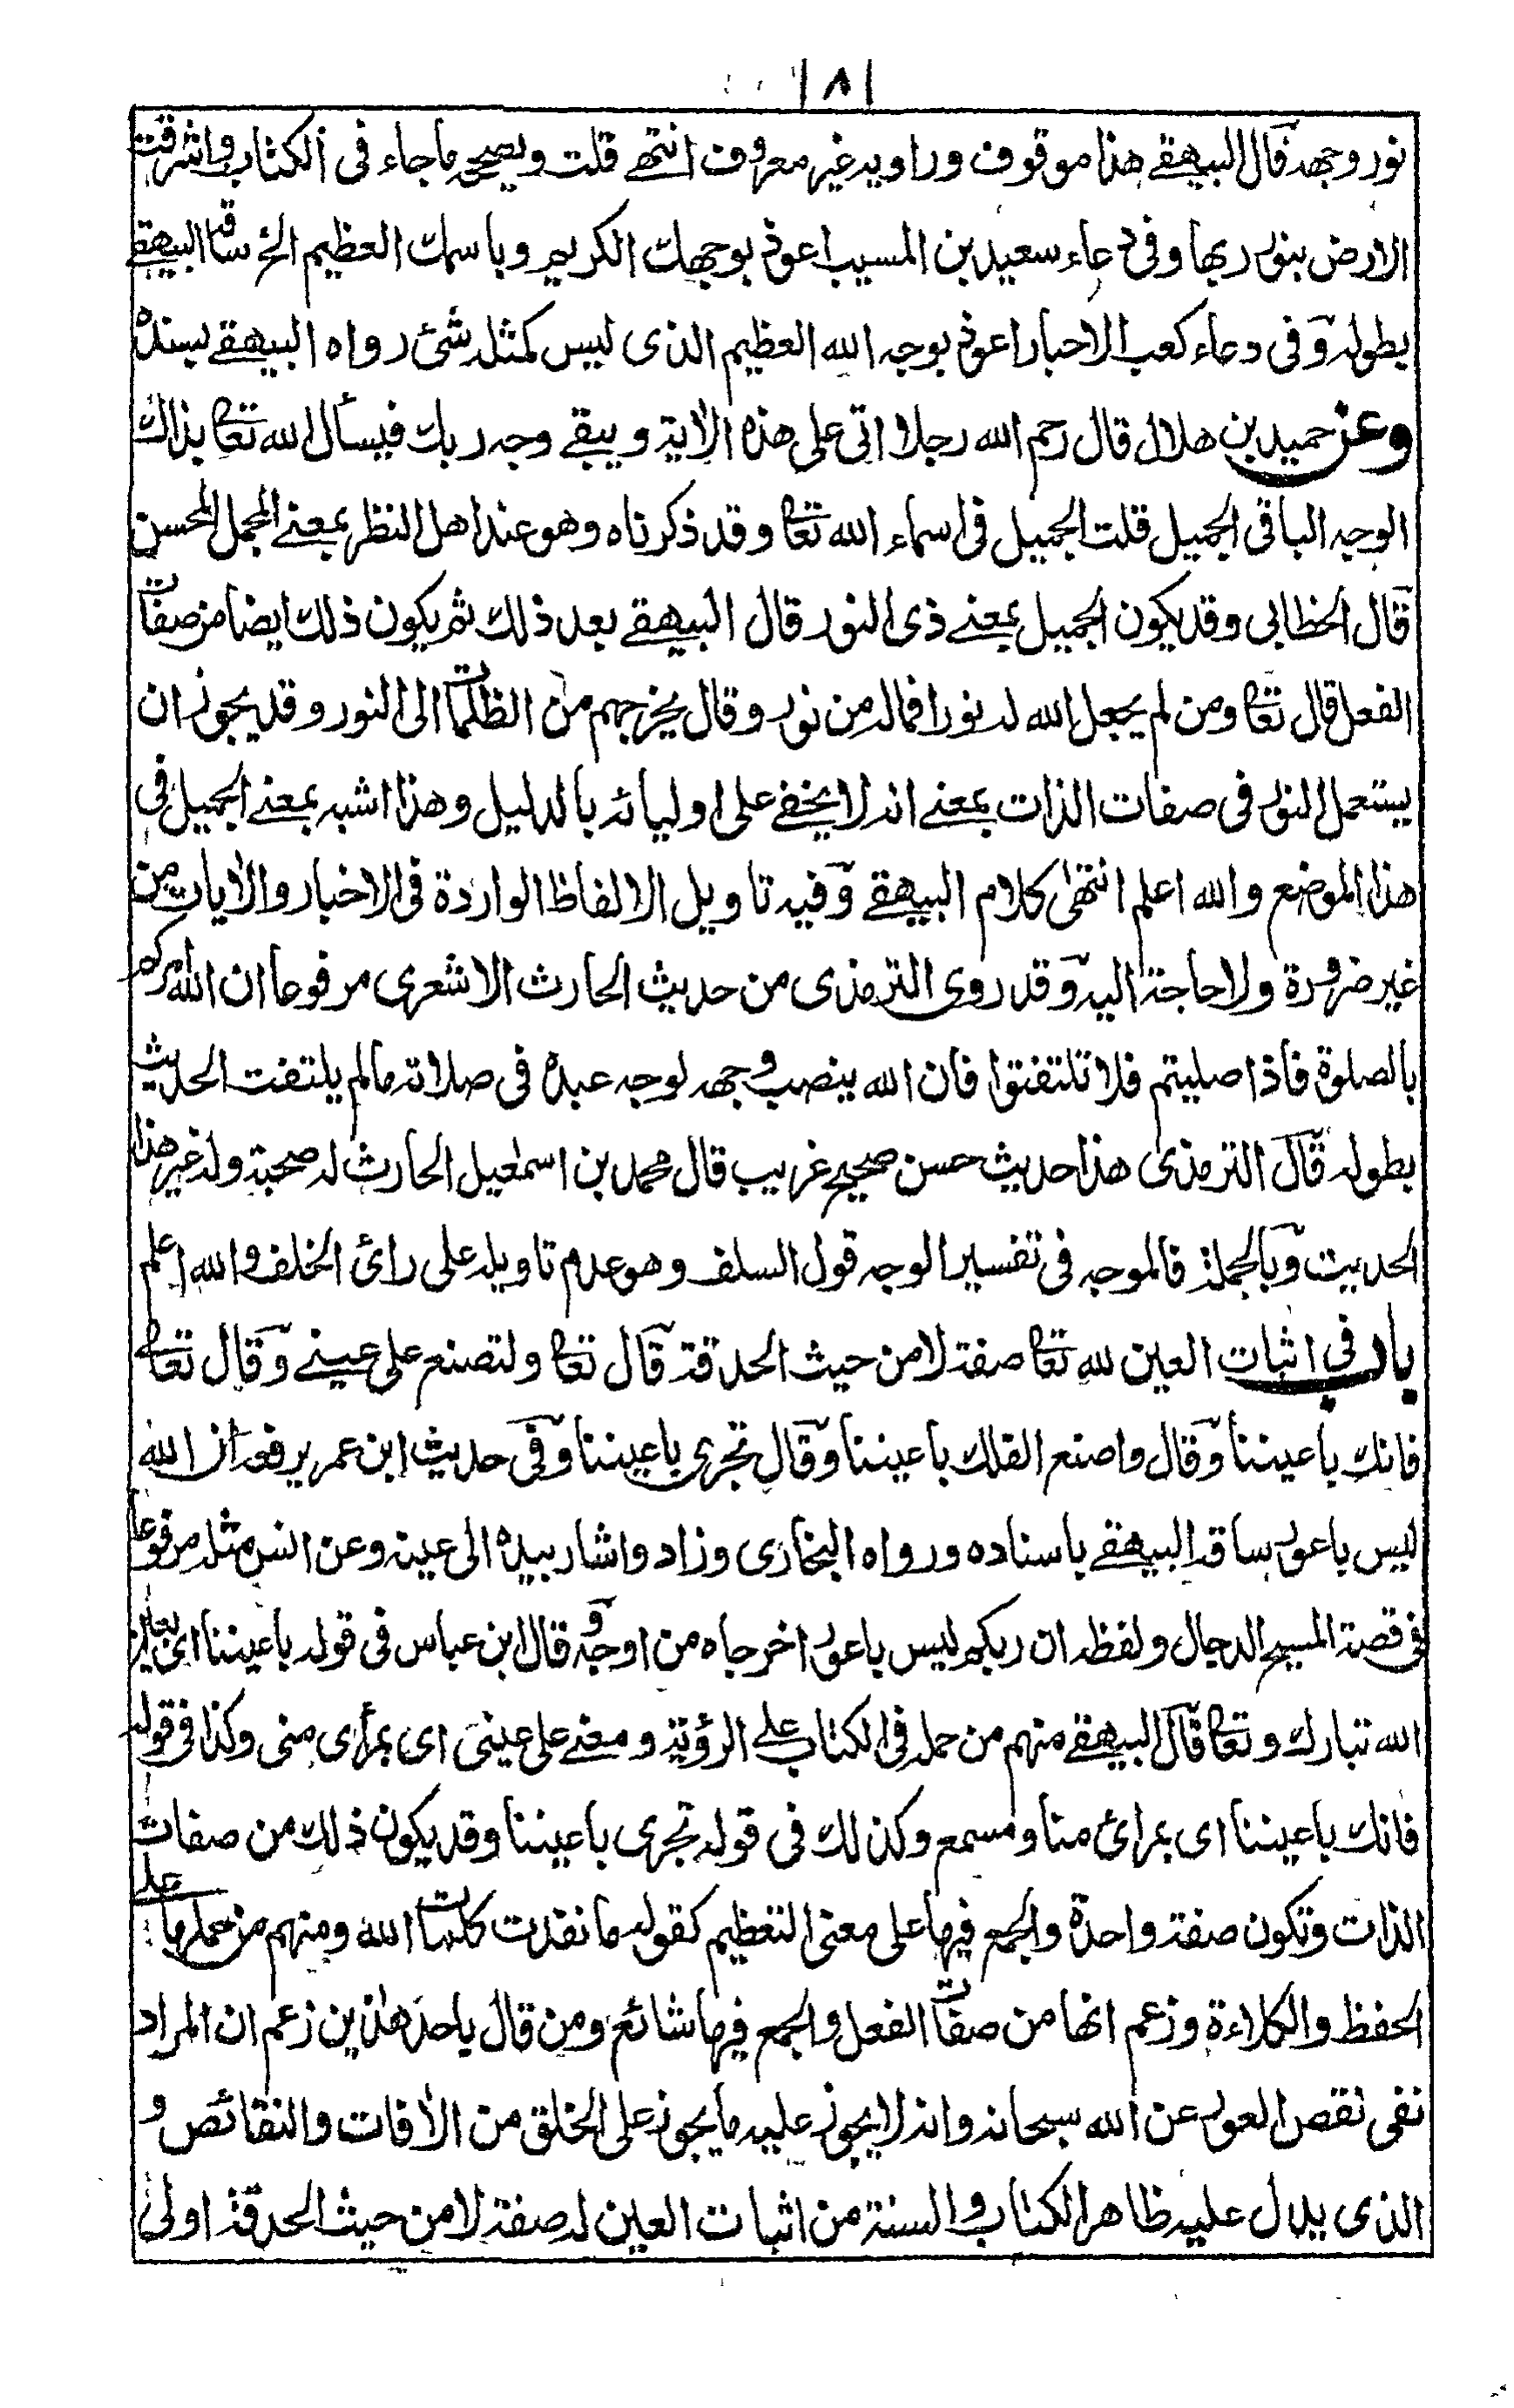 ١٨١
نور وجهه قال البيهقي هذا موقوف وراويه غير معروف انتهى قلت ويصححه ماجاء في الكتاب واشرقت
الارض بنور ربها وفي دعاء سعيد بن المسيب اعوذ بوجهك الكريم وباسمك العظيم الخ ساقه البيهقي
بطوله وفي دعاء كعب الاحبار اعوذ بوجه الله العظيم الذي ليس كمثله شئ رواه البيهقي بسنده
وعن حميد بن هلال قال رحم الله رجلا اتى على هذه الاية ويبقى وجه ربك فيسأل الله تعا بذاك
الوجه الباقي الجميل قلت الجميل في اسماء الله تعا وقد ذكرناه وهو عند اهل النظر بمعنى المجمل المحسن
قال الخطابي وقد يكون الجميل بمعنى ذي النور قال البيهقي بعد ذلك ثم يكون ذلك ايضا من صفات
الفعل قال تعا ومن لم يجعل الله له نورا فماله من نور وقال يخرجهم من الظلمات الى النور وقد يجوز ان
يستعمل النور في صفات الذات بمعنى انه لا يخفى على اوليائه بالدليل وهذا اشبه بمعنى الجميل في
هذا الموضع والله اعلم انتهى كلام البيهقي وفيه تاويل الالفاظ الواردة في الاخبار والايات من
غير ضرورة ولا حاجة اليه وقد روى الترمذي من حديث الحارث الاشعري مرفوعا ان الله امركم
بالصلوة فاذا صليتم فلا تلتفتوا فان الله ينصب وجهه لوجه عبده في صلاته مالم يلتفت الحديث
بطوله قال الترمذي هذا حديث حسن صحيح غريب قال محمد بن اسمعيل الحارث له صحبة وله غير هذا
الحديث وبالجملة فالموجه في تفسير الوجه قول السلف وهو عدم تاويله على رائ الخلف والله اعلم
باب في اثبات العين لله تعا صفة لا من حيث الحدقة قال تعا ولتصنع على عيني وقال تعا
فانك باعيننا وقال واصنع الفلك باعيننا وقال تجري باعيننا وفي حديث ابن عمر يرفعه ان الله
ليس باعور ساقه البيهقي باسناده ورواه البخاري وزاد واشار بيده الى عينه وعن انس مثله مرفوعا
في قصة المسيح الدجال ولفظه ان ربكم ليس باعور اخرجاه من اوجه وقال ابن عباس في قوله باعيننا اي بعين
الله تبارك وتعا قال البيهقي منهم من حمله في الكتاب على الرؤية ومعنى على عيني اي بمرأى مني وكذا في قوله
فانك باعيننا اي بمرائ منا ومسمع وكذلك في قوله تجري باعيننا وقد يكون ذلك من صفات
الذات وتكون صفة واحدة والجمع فيها على معنى التعظيم كقوله ما نفدت كلمات الله ومنهم من حملها على
الحفظ والكلاءة وزعم انها من صفات الفعل والجمع فيها شائع ومن قال باحد هذين زعم ان المراد
نفي نقص العور عن الله سبحانه وانه لا يجوز عليه ما يجوز على الخلق من الآفات والنقائص و
الذي يدل عليه ظاهر الكتاب والسنة من اثبات العين له صفة لا من حيث الحدقة اولى